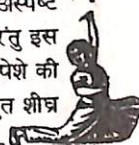 अस्पष्ट
रंतु इस
पेशे की
त शीघ्र